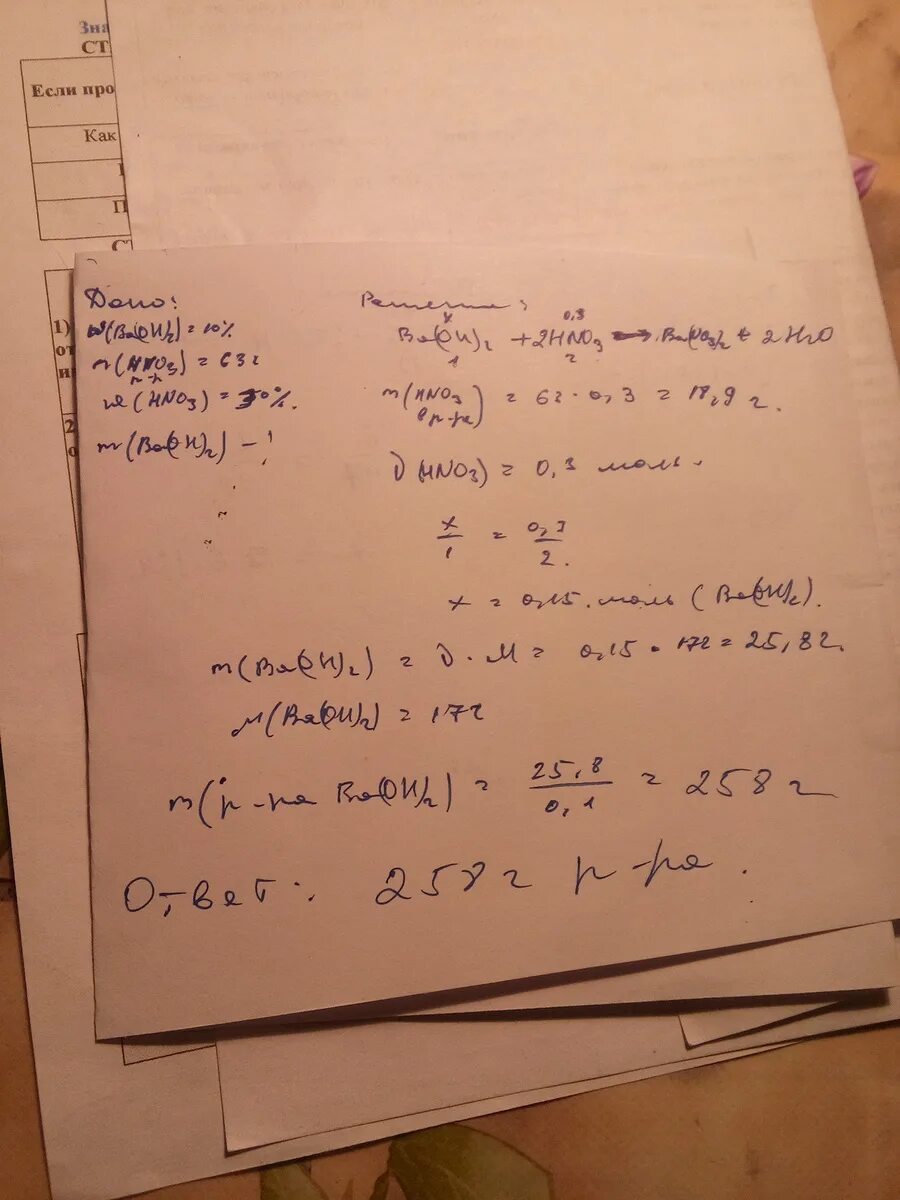 Зна
СТ
Если про
Как
П
СТ
1)
от
2
о
Дано:
w(Ba(OH)2) = 10%
m(HNO3) = 63г
р-р
w(HNO3) = 30%.
m(Ba(OH)2) - ?
Решение:
x 0,3
Ba(OH)2 + 2HNO3 → Ba(NO3)2 + 2H2O
1 2
m(HNO3 в р-ре) = 63 · 0,3 = 18,9 г.
ν(HNO3) = 0,3 моль.
x/1 = 0,3/2.
x = 0,15 моль (Ba(OH)2).
m(Ba(OH)2) = ν · M = 0,15 · 172 = 25,8г.
M(Ba(OH)2) = 172
m(р-ра Ba(OH)2) = 25,8/0,1 = 258 г
Ответ: 258 г р-ра.